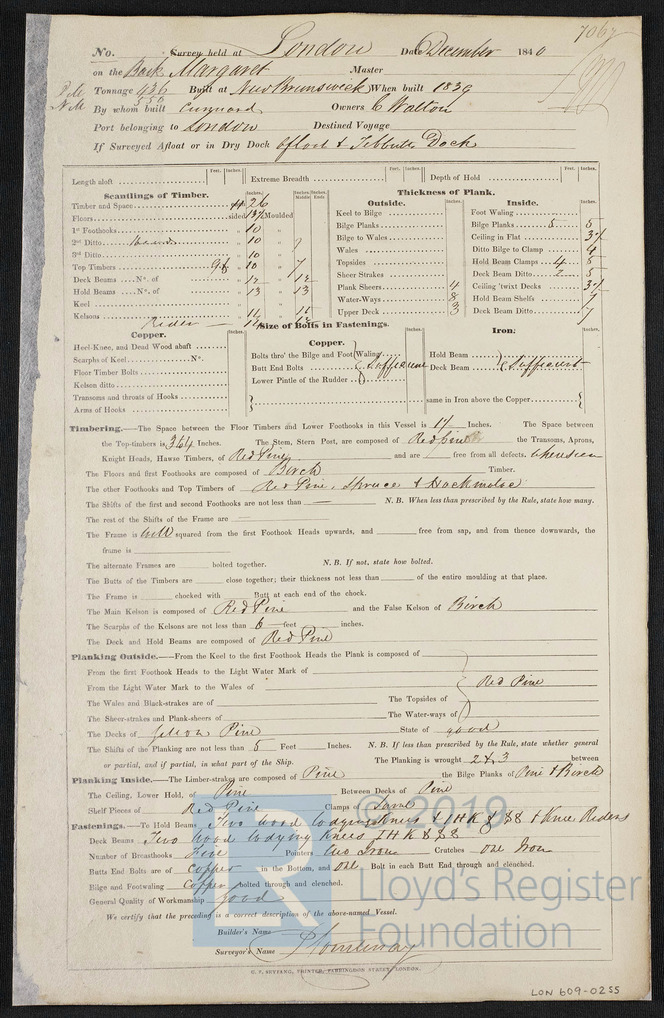 7067
No. Survey held at London Date December 1840
on the Bark Margaret Master
Tonnage 436 Built at New Brunswick When built 1839
556
By whom built Cunnard Owners C Walton
Port belonging to London Destined Voyage
If Surveyed Afloat or in Dry Dock Afloat & Tebbutts Dock
Length aloft Extreme Breadth Depth of Hold
Feet. Inches. Feet. Inches. Feet. Inches.
Scantlings of Timber.
Inches. Inches Middle Inches Ends
Timber and Space 26
Floors sided Moulded
1st Foothooks 10
2nd Ditto 10 7
3rd Ditto 10
Top Timbers 10 7
Deck Beams No. of 12 12
Hold Beams No. of 13 13
Keel
Kelsons
Rider
Thickness of Plank.
Outside. Inches.
Keel to Bilge
Bilge Planks
Bilge to Wales
Wales
Topsides
Sheer Strakes
Plank Sheers 4
Water-Ways 8
Upper Deck 3
Inside. Inches.
Foot Waling
Bilge Planks 5 5
Ceiling in Flat
Ditto Bilge to Clamp 4
Hold Beam Clamps 4 5
Deck Beam Ditto 2 5
Ceiling 'twixt Decks
Hold Beam Shelfs 7
Deck Beam Ditto 7
Size of Bolts in Fastenings.
Copper. Inches.
Heel-Knee, and Dead Wood abaft
Scarphs of Keel No.
Floor Timber Bolts
Kelson ditto
Transoms and throats of Hooks
Arms of Hooks
Copper. Inches.
Bolts thro' the Bilge and Foot Waling
Butt End Bolts Sufficient
Lower Pintle of the Rudder
Iron: Inches.
Hold Beam
Deck Beam Sufficient
same in Iron above the Copper
Timbering.—The Space between the Floor Timbers and Lower Foothooks in this Vessel is 17 Inches. The Space between
the Top-timbers is 3 & 4 Inches. The Stem, Stern Post, are composed of Red pine the Transoms, Aprons,
Knight Heads, Hawse Timbers, of Red Pine and are free from all defects. where seen
The Floors and first Foothooks are composed of Birch Timber.
The other Foothooks and Top Timbers of Red Pine, Spruce & Hackmatac
The Shifts of the first and second Foothooks are not less than — N.B. When less than prescribed by the Rule, state how many.
The rest of the Shifts of the Frame are —
The Frame is well squared from the first Foothook Heads upwards, and free from sap, and from thence downwards, the
frame is
The alternate Frames are bolted together. N.B. If not, state how bolted.
The Butts of the Timbers are close together; their thickness not less than of the entire moulding at that place.
The Frame is chocked with Butt at each end of the chock.
The Main Kelson is composed of Red Pine and the False Kelson of Birch
The Scarphs of the Kelsons are not less than 6 feet inches.
The Deck and Hold Beams are composed of Red Pine
Planking Outside.—From the Keel to the first Foothook Heads the Plank is composed of
From the first Foothook Heads to the Light Water Mark of
From the Light Water Mark to the Wales of Red Pine
The Wales and Black-strakes are of The Topsides of
The Sheer-strakes and Plank-sheers of The Water-ways of
The Decks of Yellow Pine State of good
The Shifts of the Planking are not less than 5 Feet Inches. N.B. If less than prescribed by the Rule, state whether general
or partial, and if partial, in what part of the Ship. The Planking is wrought 2 & 3 between
Planking Inside.—The Limber-strakes are composed of Pine the Bilge Planks of Pine & Birch
The Ceiling, Lower Hold, of Pine Between Decks of Pine
Shelf Pieces of Red Pine Clamps of Same
Fastenings.—To Hold Beams Two wood lodging Knees & I H K & & Knee Riders
Deck Beams Two wood lodging Knees I H K &
Number of Breasthooks Pointers two Iron Crutches one Iron
Butts End Bolts are of copper in the Bottom, and one Bolt in each Butt End through and clenched.
Bilge and Footwaling Copper bolted through and clenched.
General Quality of Workmanship good
We certify that the preceding is a correct description of the above-named Vessel.
Builder's Name
Surveyor's Name
G. F. SEYFANG, PRINTER, FARRINGDON STREET, LONDON.
LON 609-0255
© 2019
Lloyd's Register
Foundation